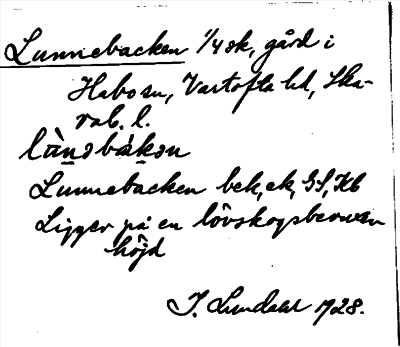 Lunnebacken 1/4 sk, gård i
Habo sn, Vartofta hd, Ska-
rab. l.
lùnəbàkən
Lunnebacken bek, ek, GS, Kb
Ligger på en lövskogsbevuxen
höjd
I. Lundahl 1928.